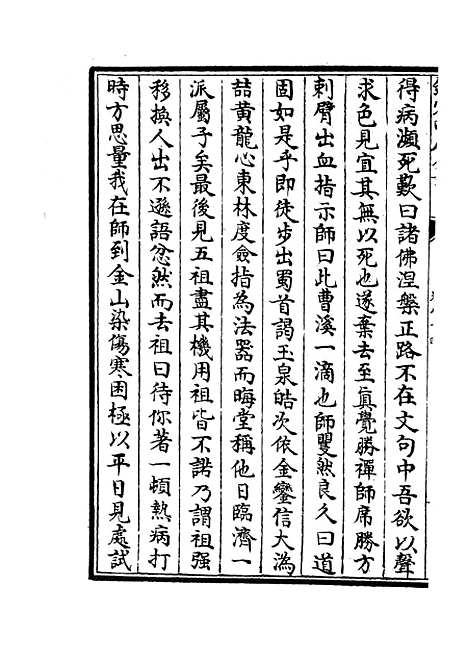 得病瀕死歎曰諸佛涅槃正路不在文句中吾欲以聲
求色見宜其無以死也遂棄去至真覺勝禪師席勝方
刺臂出血指示師曰此曹溪一滴也師矍然良久曰道
固如是乎即徒步出蜀首謁玉泉皓次依金鑾信大溈
喆黃龍心東林度僉指為法器而晦堂稱他日臨濟一
派屬子矣最後見五祖盡其機用祖皆不諾乃謂祖强
移換人出不遜語忿然而去祖曰待你著一頓熱病打
時方思量我在師到金山染傷寒困極以平日見處試